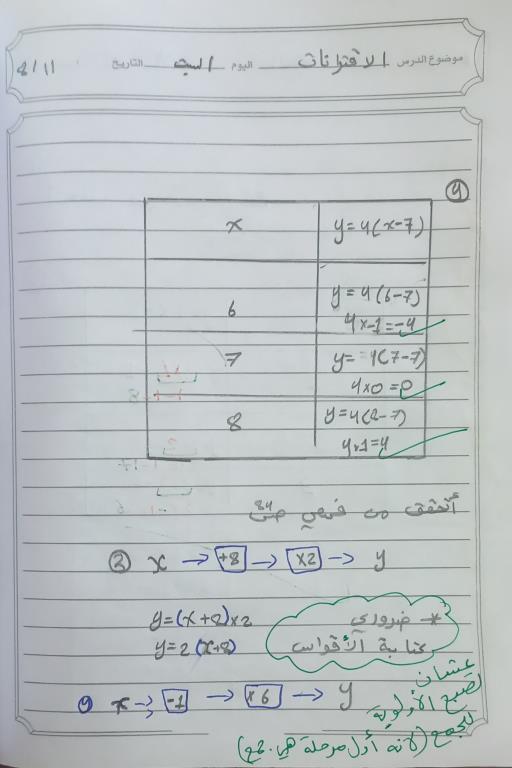 موضوع الدرس الاقترانات اليوم السبت التاريخ 8/11
4
x y=4(x-7)
6 y=4(6-7)
4x-1=-4
7 y=4(7-7)
4x0=0
8 y=4(8-7)
4x1=4
أتحقق من فهمي ص84
2 x → +8 → x2 → y
y=(x+8)x2
y=2(x+8)
* ضروري
كتابة الأقواس
عشان
تصبح الأولوية
للجمع (لأنه أول مرحلة هي جمع)
x → -1 → x6 → y